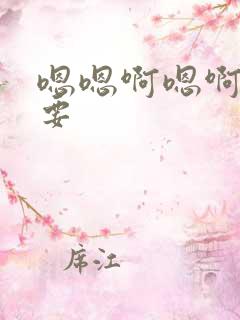 嗯嗯啊嗯啊
要
席江